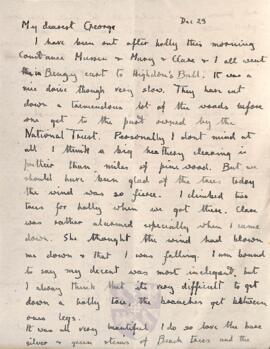 Dec 29
My dearest George
I have been out after holly this morning
Constance Mussen & Mary & Clare & I all went
in Bungey cart to Highdon's Ball. It was a
nice drive though very slow. They have cut
down a tremendous lot of the woods before
one get to the part owned by the
National Trust. Personally I dont mind at
all I think a big heathery clearing is
prettier than miles of pine wood. But we
should have been glad of the trees today
the wind was so fierce. I climbed two
trees for holly when we got there. Clare
was rather alarmed especially when I came
down. She thought the wind had blown
me down & that I was falling. I am bound
to say my decent was most inelegant, but
I always think that its very difficult to get
down a holly tree, the branches get between
ones legs.
It was all very beautiful I do so love the bare
silver & green stems of Beech trees and the